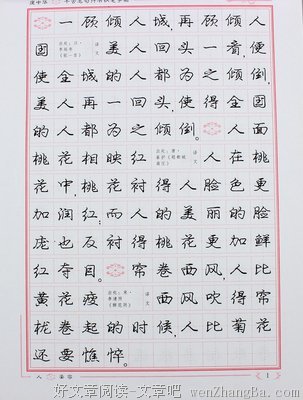 一顾倾人城,再顾倾人
国
美人回头一看,便倾倒
使全城的人都为之倾倒,
美人再一回头使得全国
的人都为之倾倒。
人面
桃花相映红
人在桃
花中,桃花衬得人脸色更
加润红;而人的美丽的脸
庞也反衬得桃花更加鲜
红夺目。
帘卷西风,人比
黄花瘦
西风吹得帘
栊卷起的时候,人比菊花
还要憔悴。
译文
译文
译文
人
1
好文章阅读-文章吧 wenZhangBa.com